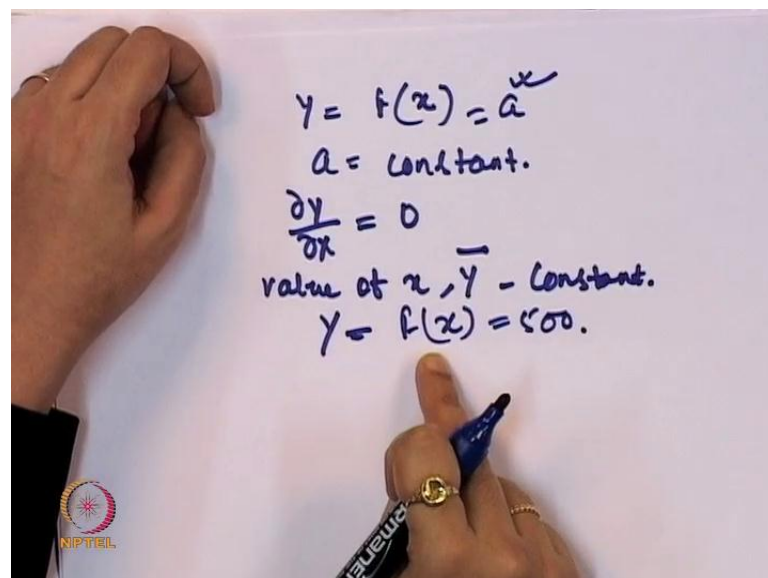 Y = f(x) = a
a = constant.
∂y/∂x = 0
value of x, Y - Constant.
Y = f(x) = 500.
rmanen
NPTEL